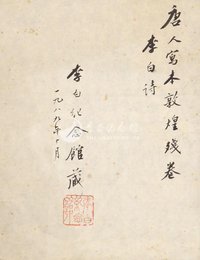 唐人寫本敦煌殘卷
李白詩
李白纪念館藏
一九八九年十月